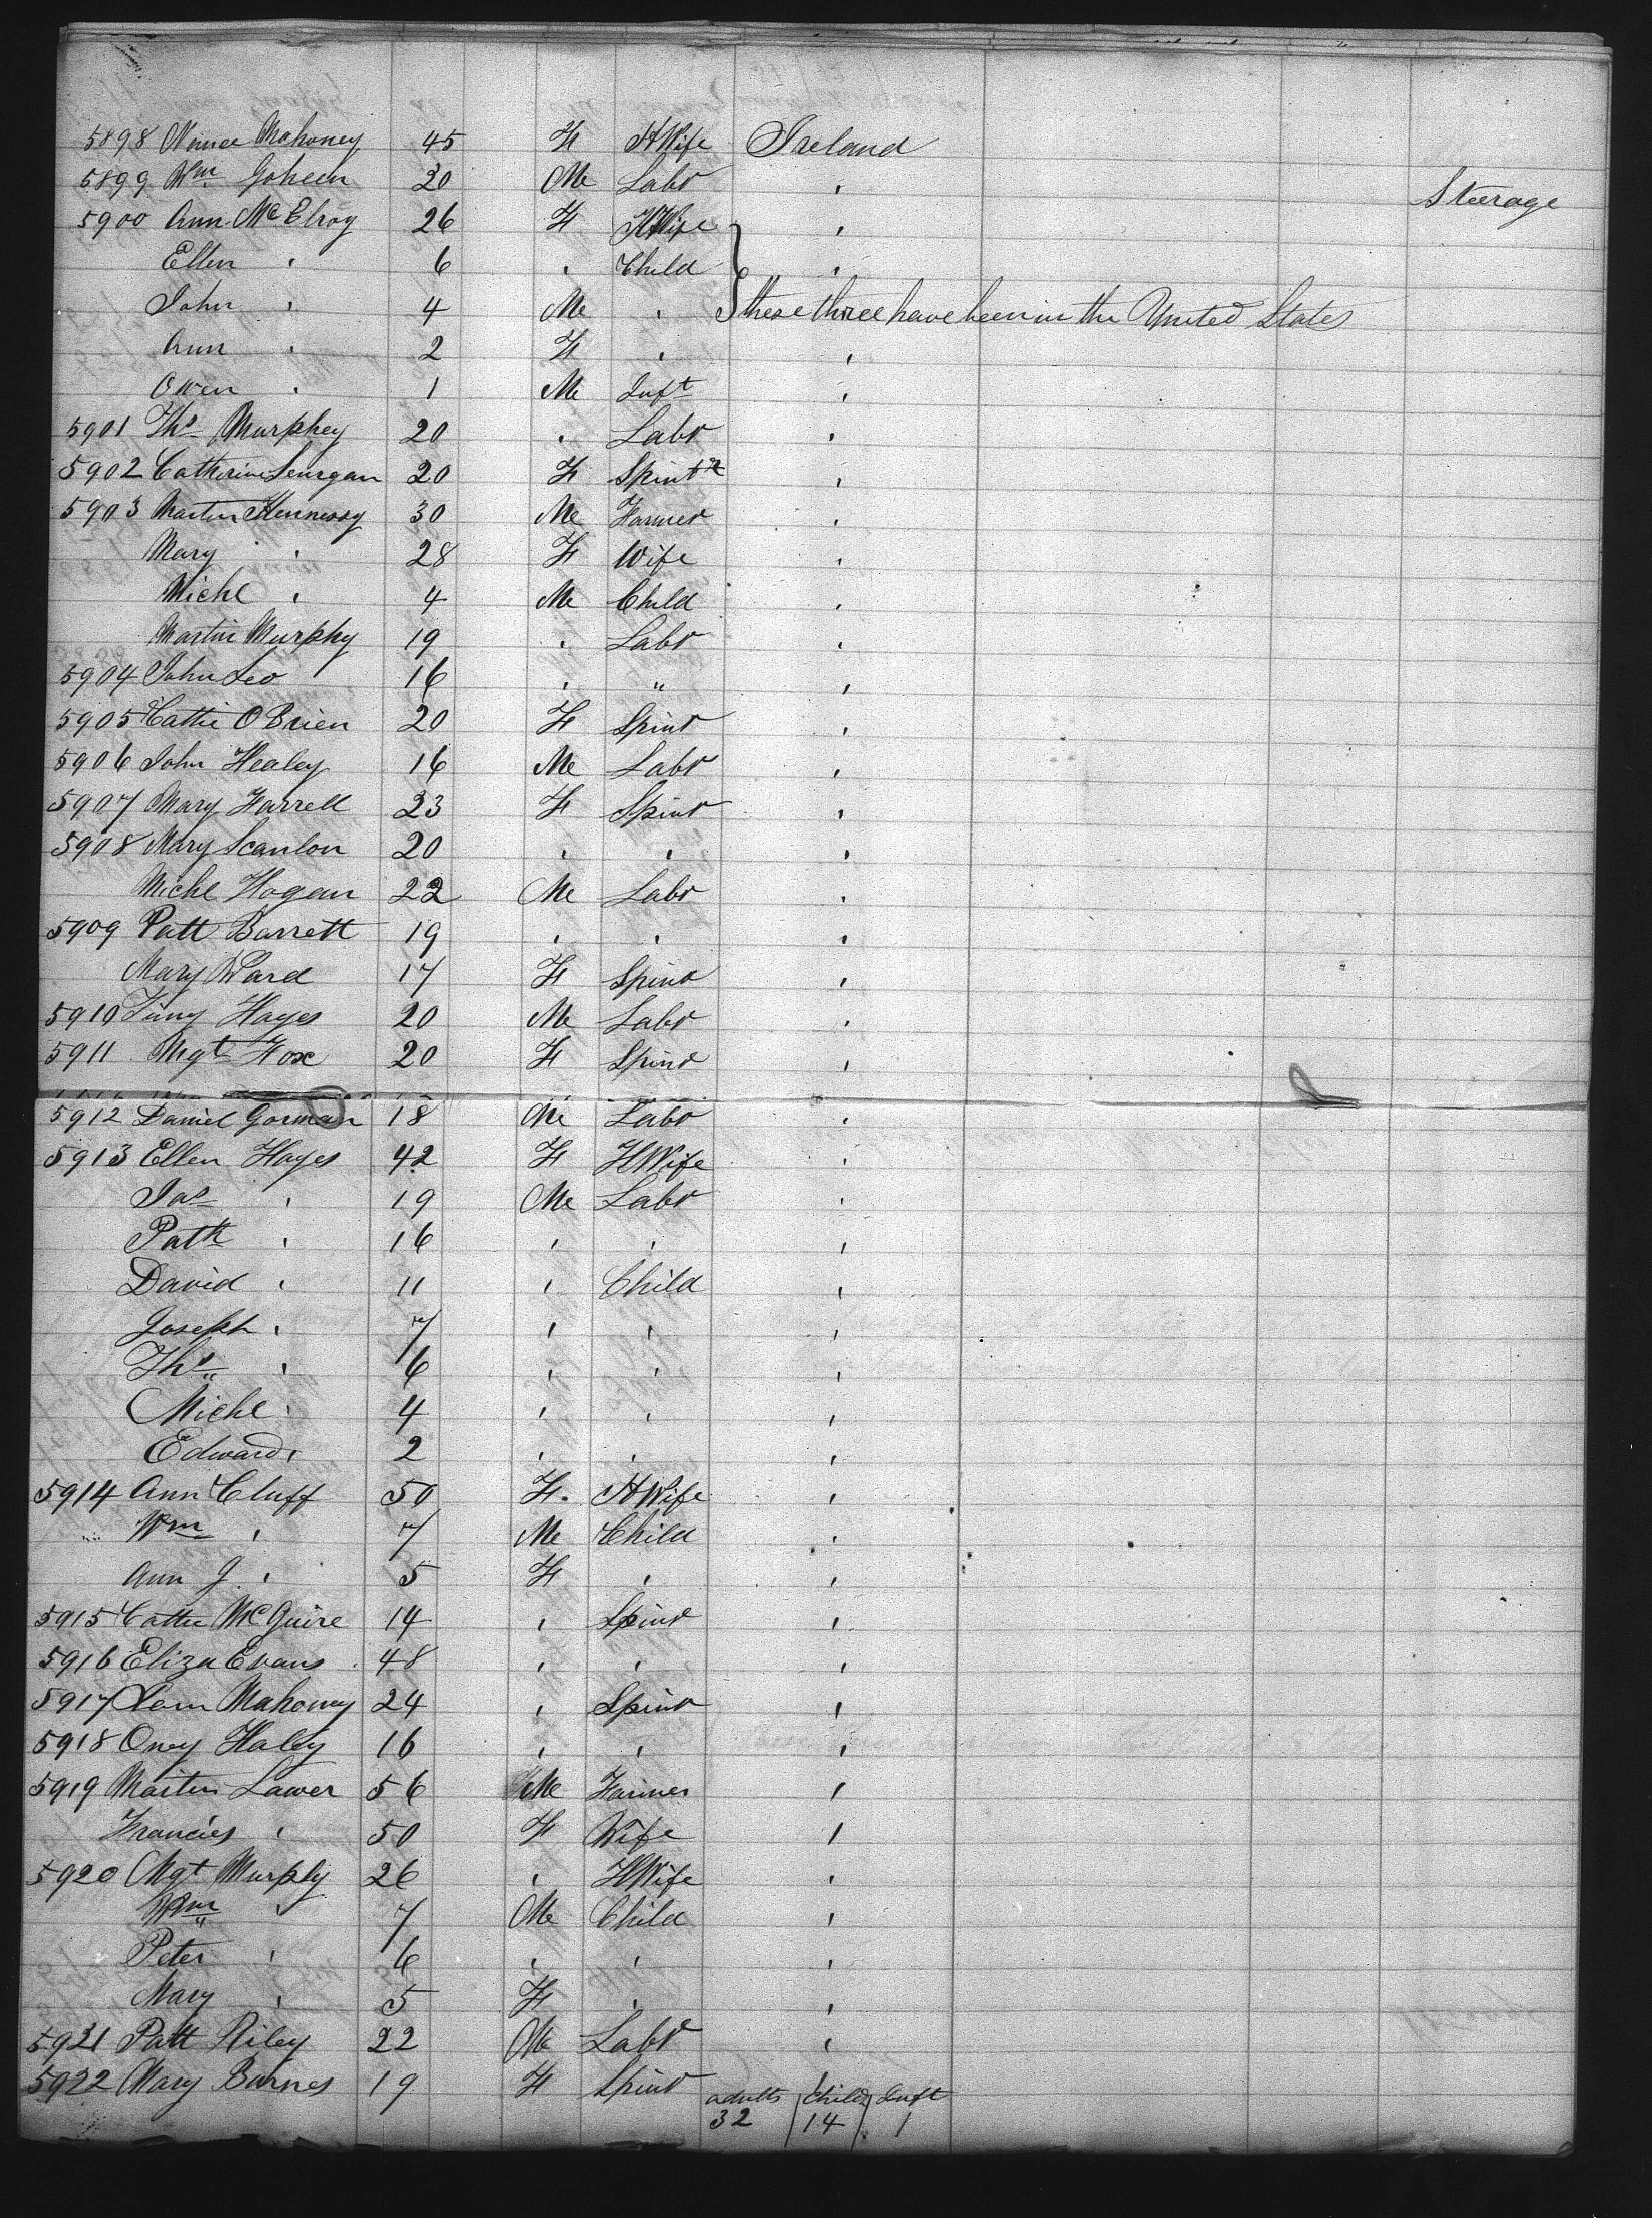 5898 Mahoney 45 F HWife Ireland
5899 Wm Goheen 20 Me Labr ' Steerage
5900 Ann McElroy 26 F HWife '
Ellen ' 6 ' Child '
John ' 4 Me ' These three have been in the United States
Ann ' 2 F ' '
Owen ' 1 Me Inft '
5901 Thos Murphey 20 ' Labr '
5902 Catherine 20 F Spintr '
5903 Martin Hennessy 30 Me Farmer '
Mary ' 28 F Wife '
Michl ' 4 Me Child '
Martin Murphy 19 ' Labr '
5904 John Leo 16 ' " '
5905 Cathe O Brien 20 F Spinr '
5906 John Healey 16 Me Labr '
5907 Mary Farrell 23 F Spinr '
5908 Mary Scanlon 20 ' ' '
Michl Hogan 22 Me Labr '
5909 Patt Barrett 19 ' ' '
Mary Ward 17 F Spinr '
5910 Timy Hayes 20 Me Labr '
5911 Mgt Fox 20 F Spinr '
5912 Daniel Gorman 18 Me Labr '
5913 Ellen Hayes 42 F HWife '
Jas ' 19 Me Labr '
Patk ' 16 ' ' '
David ' 11 ' Child '
Joseph ' 7 ' ' '
Thos ' 6 ' ' '
Michl ' 4 ' ' '
Edward ' 2 ' ' '
5914 Ann Cluff 50 F. HWife '
Wm ' 7 Me Child '
Ann J ' 5 F ' '
5915 Cathe McGuire 14 ' Spinr '
5916 Eliza Evans 48 ' ' '
5917 Mahoney 24 ' Spinr '
5918 Oney Haley 16 ' ' '
5919 Martin Lawer 56 Me Farmer '
Francies ' 50 F Wife '
5920 Mgt Murphy 26 ' HWife '
Wm ' 7 Me Child '
Peter ' 6 ' ' '
Mary ' 5 F ' '
5921 Patt Riley 22 Me Labr '
5922 Mary Burnes 19 F Spinr '
adults Child Inft
32 14 1